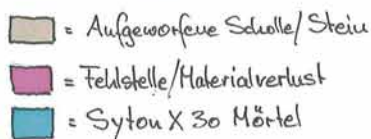 = Aufgeworfene Scholle/Stein
= Fehlstelle/Materialverlust
= Syton X 30 Mörtel